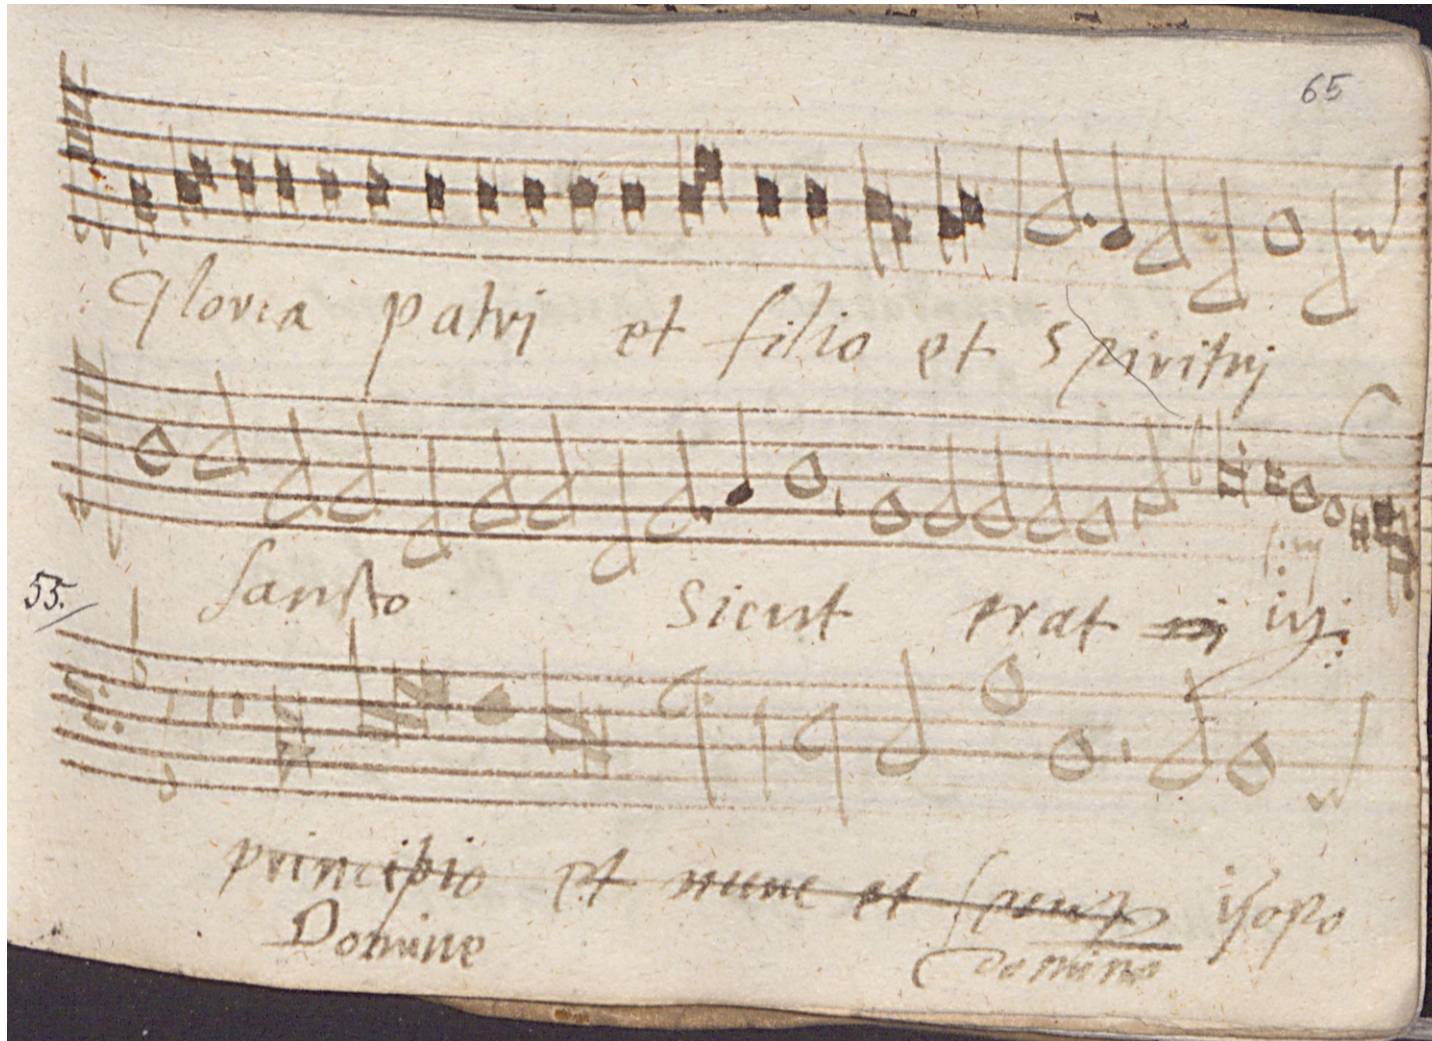 65
Gloria patrj et filio et Spiritrj
sansto Sicut erat in
55.
principio et nunc et isopo
Domine domine